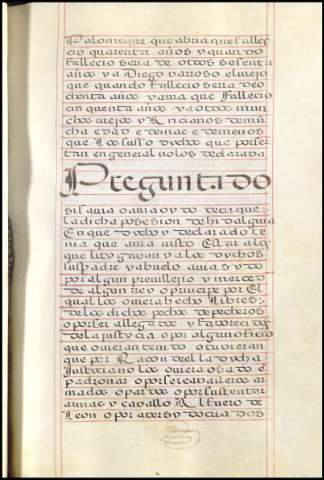 Palomeque que abria que falles
cio quarenta años y quando
fallecio seria de otros sesenta
años y a Diego parroso el viejo
que quando fallecio seria de o
chenta años y auia que fallecio
cinquenta años y a otros mun
chos viejos y Ancianos de mu
cha edad e demas e de menos
que los susso dychos que por ser
tan en general no los declaraba
Preguntado
si sauia o auia oydo decir que
la dicha posesion de hidalguia
En que dycho y declarado te
nia que auia visto Estar a los
que litygauan y a los dychos
sus padre y abuelo auia sydo
por algun preuillejio y merced
de algun rrey o principe por El
qual los ouiera hecho libres
de los dichos pechos de pecheros
o por ser allegados y favorecidos
de la justycia o por algun oficio
que ouieran tenido o tuvieran
que por Racon de el la dycha
Justycia no los ouiera osado e
padronar o por ser cavalleros ar
mados o pardos o por sustentar
armas y cavallo Al fuero de
Leon o por aber sydo criados